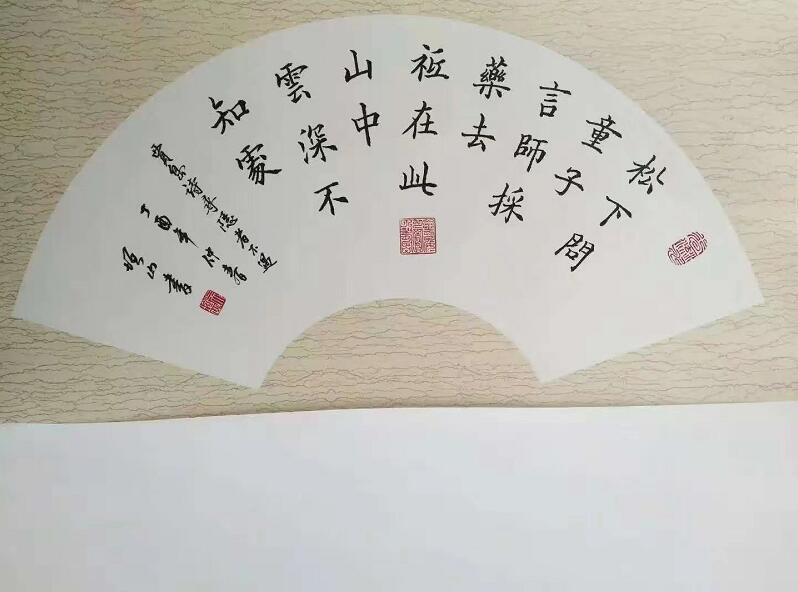 松下問
童子
言師採
藥去
祗在此
山中
雲深不
知處
賈島詩尋隱者不遇
丁酉年仲春
山書